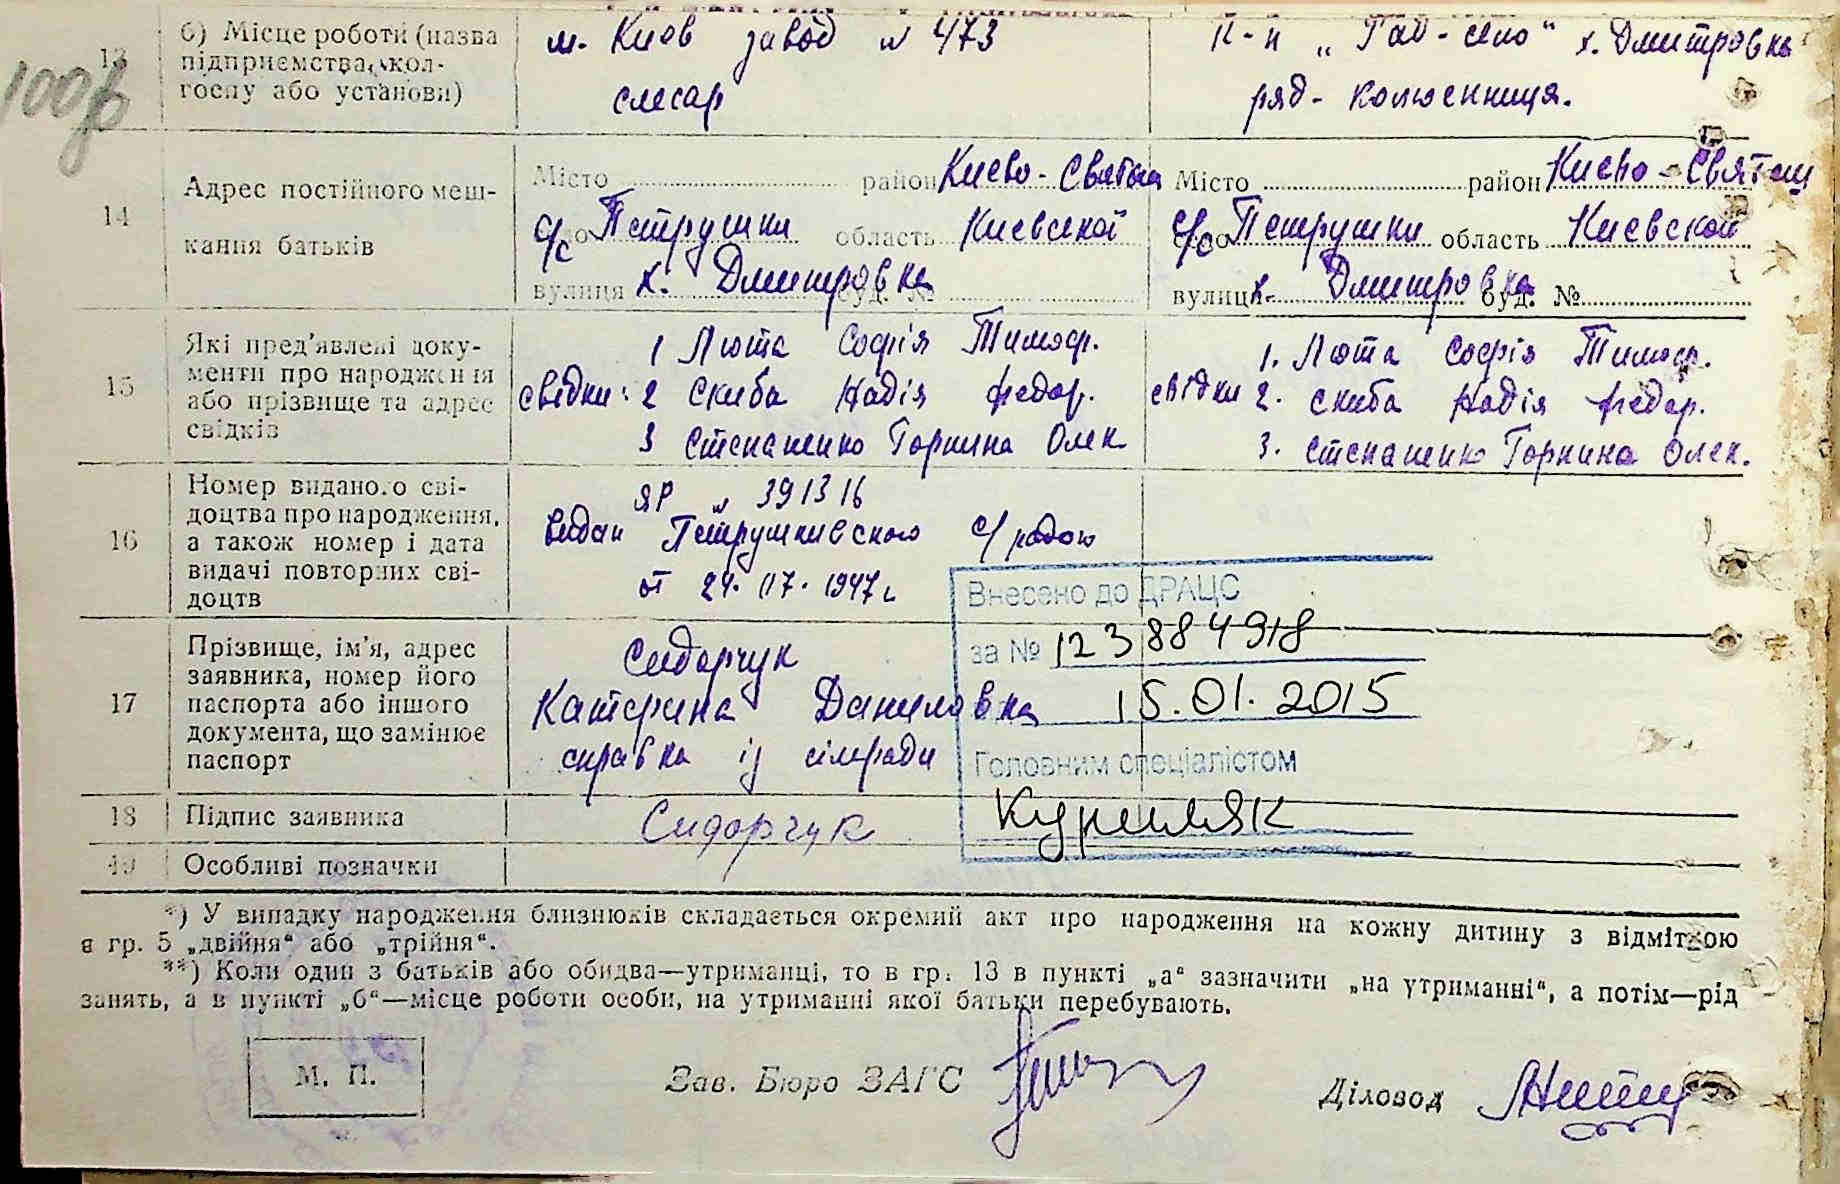 13
б) Місце роботи (назва
підприємства, кол-
госпу або установи)
м. Киев завод № 473
слесар
х. Дмитровка
ряд-
100р
14
Адрес постійного меш-
кання батьків
Місто район Киево-Святош
с/с Петрушки область Киевской
вулиця х. Дмитровка буд. №
Місто район Киево-Святош
с/с Петрушки область Киевской
вулиця х. Дмитровка буд. №
15
Які пред'явлені доку-
менти про народження
або прізвище та адрес
свідків
1 Люта Софія Тимоф.
свідки: 2 Скиба Надія Федор.
3 Степаненко Горпина Олек
1. Люта Софія Тимоф.
свідки 2. Скиба Надія Федор.
3. Степаненко Горпина Олек.
16
Номер виданого сві-
доцтва про народження,
а також номер і дата
видачі повторних сві-
доцтв
ЯР № 391316
видан Петрушкивською с/радою
от 24. 17. 1947 г
17
Прізвище, ім'я, адрес
заявника, номер його
паспорта або іншого
документа, що замінює
паспорт
Сидорчук
Катерина Даниловка
справка із сілради
Внесено до ДРАЦС
за № 123884918
15.01.2015
Головним спеціалістом
18
Підпис заявника
Сидорчук
19
Особливі позначки
*) У випадку народження близнюків складається окремий акт про народження на кожну дитину з відміткою
в гр. 5 „двійня“ або „трійня“.
**) Коли один з батьків або обидва—утриманці, то в гр. 13 в пункті „а“ зазначити „на утриманні“, а потім—рід
занять, а в пункті „б“—місце роботи особи, на утриманні якої батьки перебувають.
М. П.
Зав. Бюро ЗАГС
Діловод